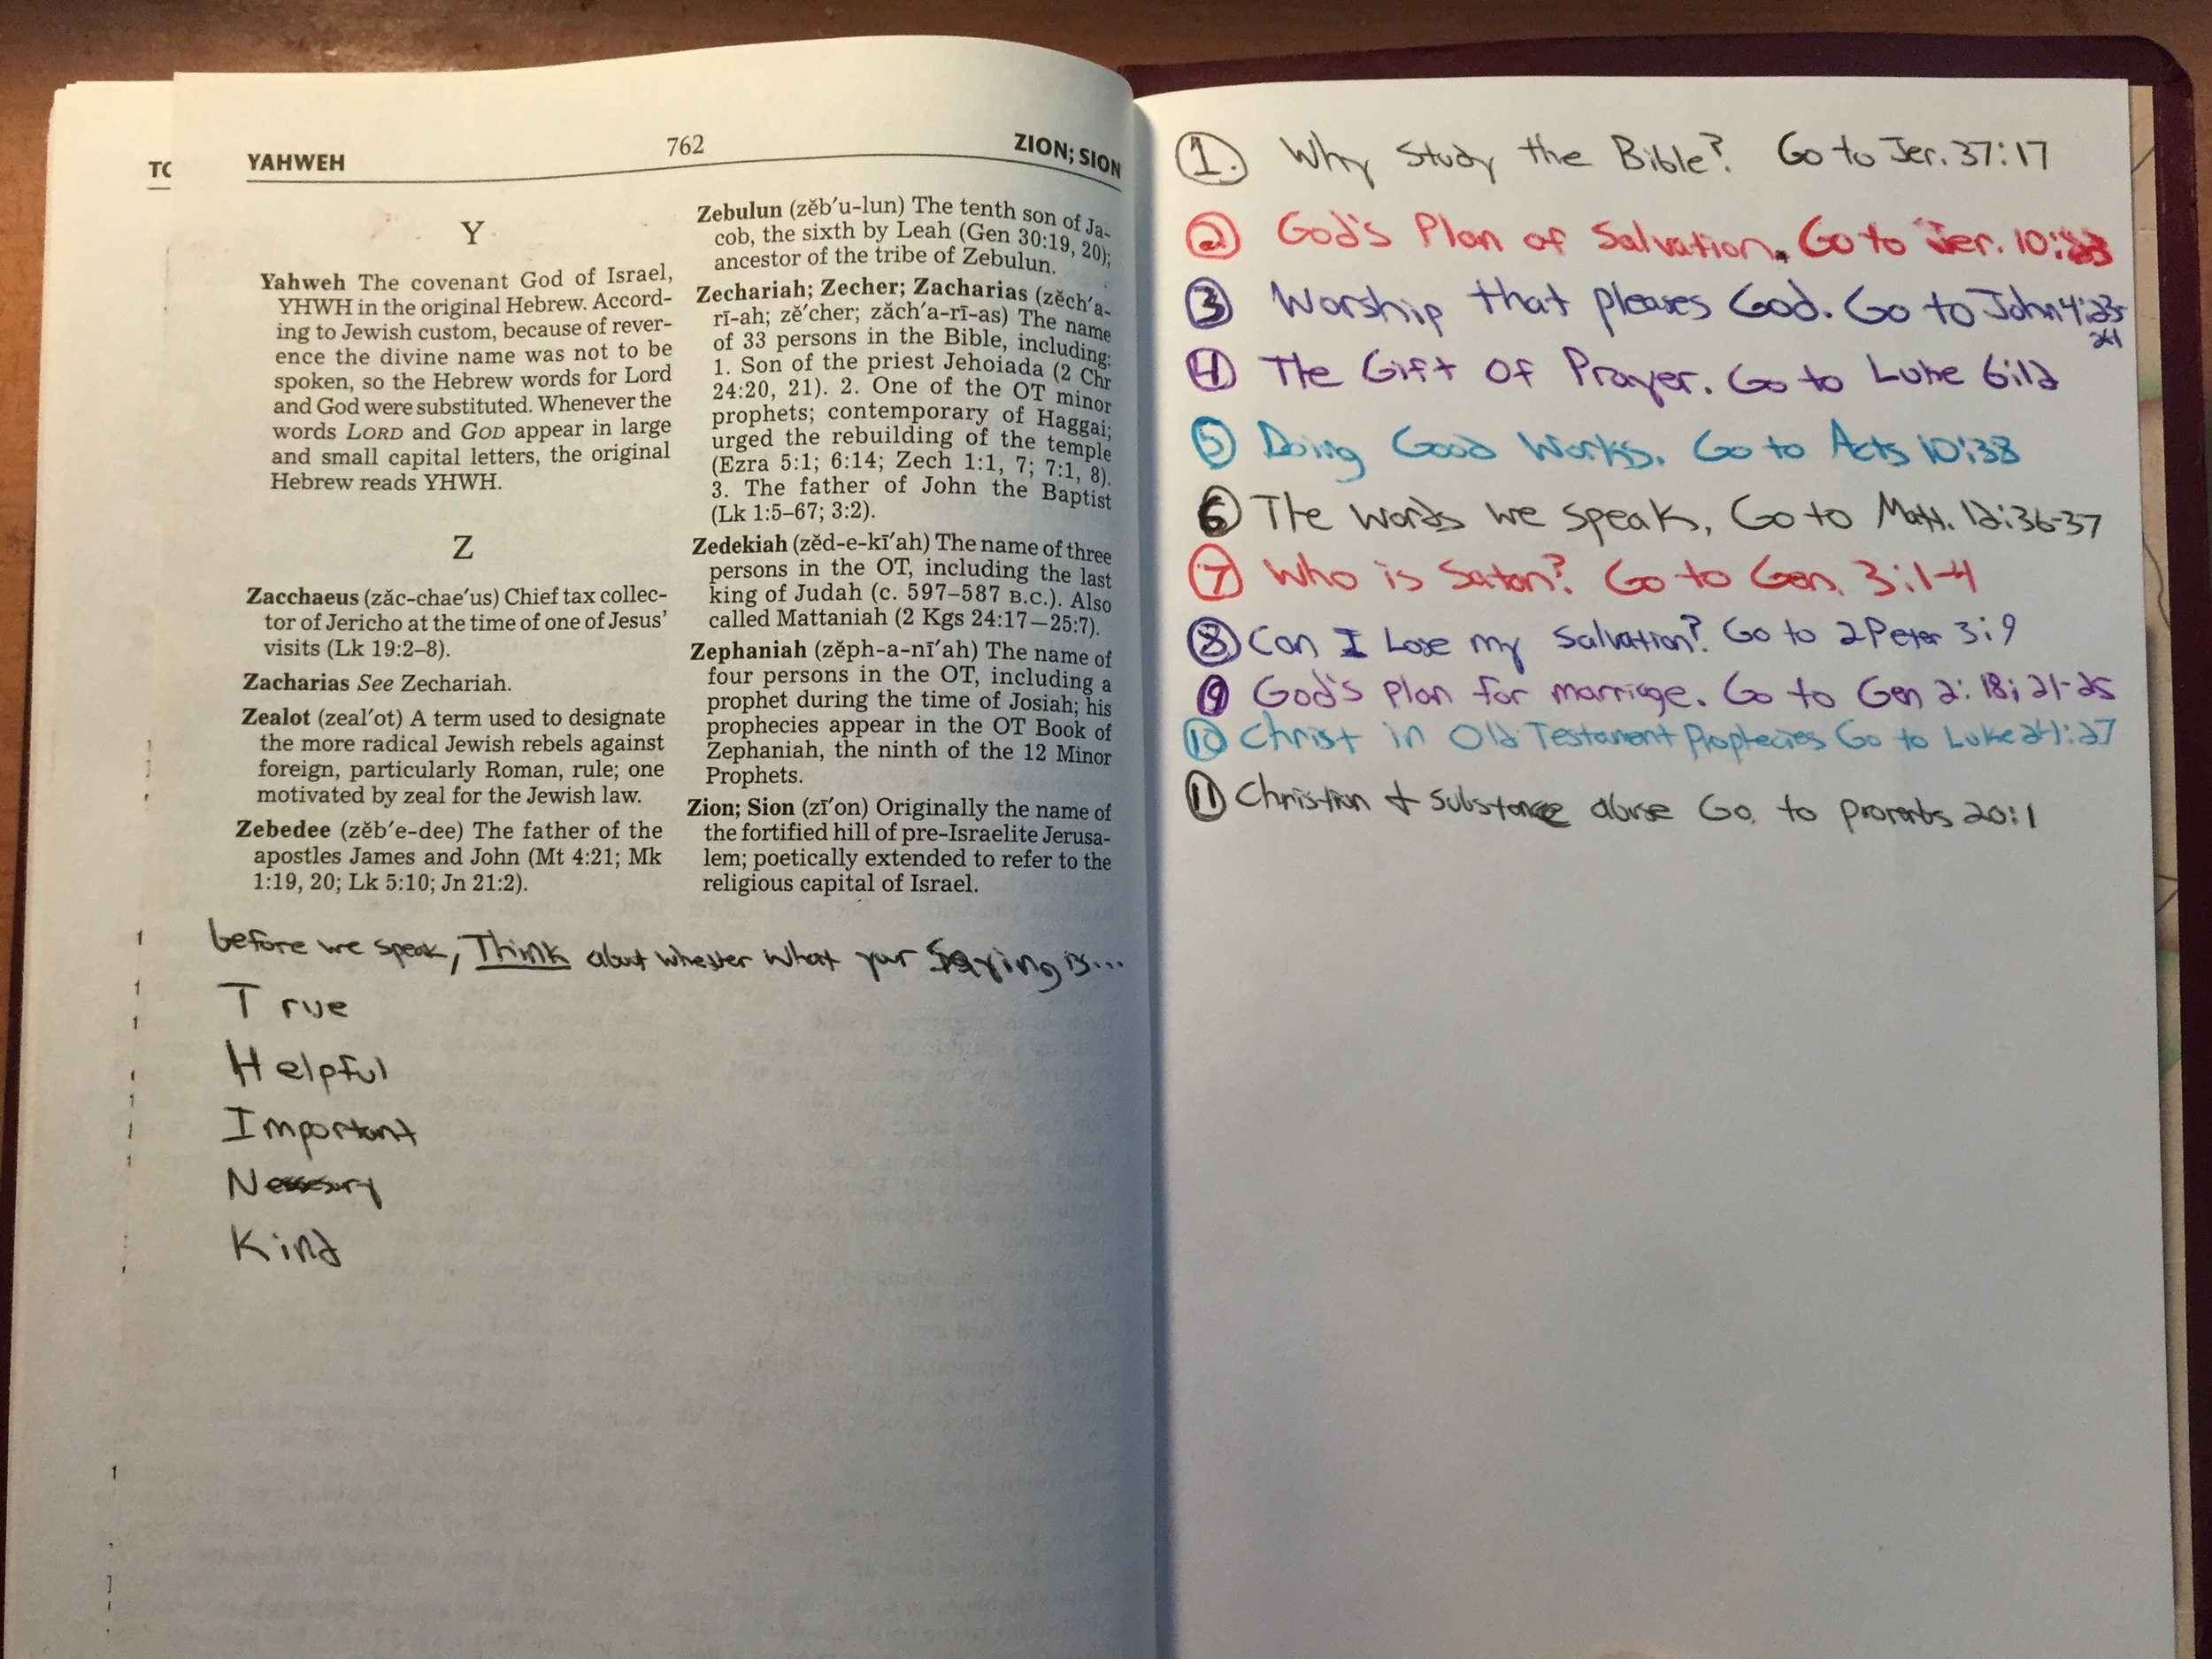 TO
YAHWEH 762 ZION; SION
Y
Yahweh The covenant God of Israel,
YHWH in the original Hebrew. Accord-
ing to Jewish custom, because of rever-
ence the divine name was not to be
spoken, so the Hebrew words for Lord
and God were substituted. Whenever the
words LORD and GOD appear in large
and small capital letters, the original
Hebrew reads YHWH.
Z
Zacchaeus (zăc-chae′us) Chief tax collec-
tor of Jericho at the time of one of Jesus’
visits (Lk 19:2–8).
Zacharias See Zechariah.
Zealot (zeal′ot) A term used to designate
the more radical Jewish rebels against
foreign, particularly Roman, rule; one
motivated by zeal for the Jewish law.
Zebedee (zĕb′e-dee) The father of the
apostles James and John (Mt 4:21; Mk
1:19, 20; Lk 5:10; Jn 21:2).
Zebulun (zĕb′u-lun) The tenth son of Ja-
cob, the sixth by Leah (Gen 30:19, 20);
ancestor of the tribe of Zebulun.
Zechariah; Zecher; Zacharias (zĕch′a-
rī-ah; zē′cher; zăch′a-rī-as) The name
of 33 persons in the Bible, including:
1. Son of the priest Jehoiada (2 Chr
24:20, 21). 2. One of the OT minor
prophets; contemporary of Haggai;
urged the rebuilding of the temple
(Ezra 5:1; 6:14; Zech 1:1, 7; 7:1, 8).
3. The father of John the Baptist
(Lk 1:5–67; 3:2).
Zedekiah (zĕd-e-kī′ah) The name of three
persons in the OT, including the last
king of Judah (c. 597–587 B.C.). Also
called Mattaniah (2 Kgs 24:17—25:7).
Zephaniah (zĕph-a-nī′ah) The name of
four persons in the OT, including a
prophet during the time of Josiah; his
prophecies appear in the OT Book of
Zephaniah, the ninth of the 12 Minor
Prophets.
Zion; Sion (zī′on) Originally the name of
the fortified hill of pre-Israelite Jerusa-
lem; poetically extended to refer to the
religious capital of Israel.
before we speak, Think about whether what your Saying is...
True
Helpful
Important
Nessesary
Kind
1. Why Study the Bible? Go to Jer. 37:17
2 God's Plan of Salvation. Go to Jer. 10:23
3 Worship that pleases God. Go to John 4:23-
24
4 The Gift Of Prayer. Go to Luke 6:12
5 Doing Good Works. Go to Acts 10:38
6 The words we speak, Go to Matt. 12:36-37
7 Who is Satan? Go to Gen. 3:1-4
8 Can I Lose my Salvation? Go to 2 Peter 3:9
9 God's plan for marriage. Go to Gen 2:18; 21-25
10 Christ in Old Testament Prophecies Go to Luke 24:27
11 Christian + substance abuse Go to proverbs 20:1